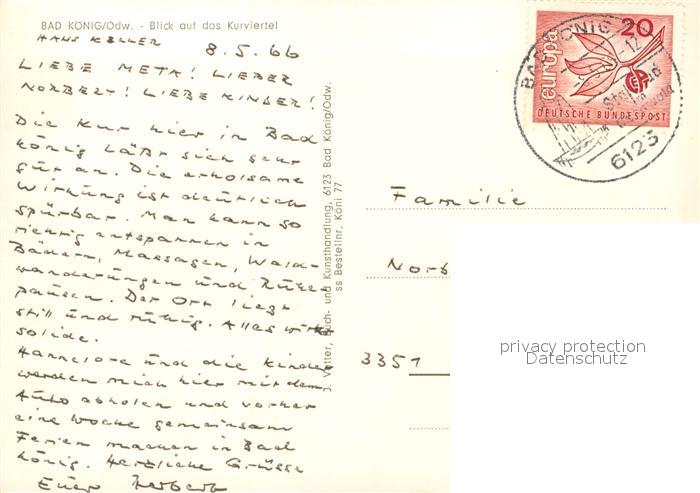 BAD KÖNIG/Odw. - Blick auf das Kurviertel
HANS KELLER 8.5.66
LIEBE META! LIEBER
NORBERT! LIEBE KINDER!
Die Kur hier in Bad
König läßt sich sehr
gut an. Die erholsame
Wirkung ist deutlich
spürbar. Man kann so
richtig entspannen in
Bädern, Massagen, Wald-
wanderungen und Ruhe-
pausen. Der Ort liegt
still und ruhig. Alles wirkt
solide.
Hannelore und die Kinder
werden mich hier mit dem
Auto abholen und vorher
eine Woche gemeinsam
Ferien machen in Bad
König. Herzliche Grüsse
Euer Herbert
J. Vetter, Buch- und Kunsthandlung, 6123 Bad König/Odw.
ss Bestellnr. Köni 77
europa
20
DEUTSCHE BUNDESPOST
BAD KÖNIG
-12
6123
Familie
Norb
3351
privacy protection
Datenschutz